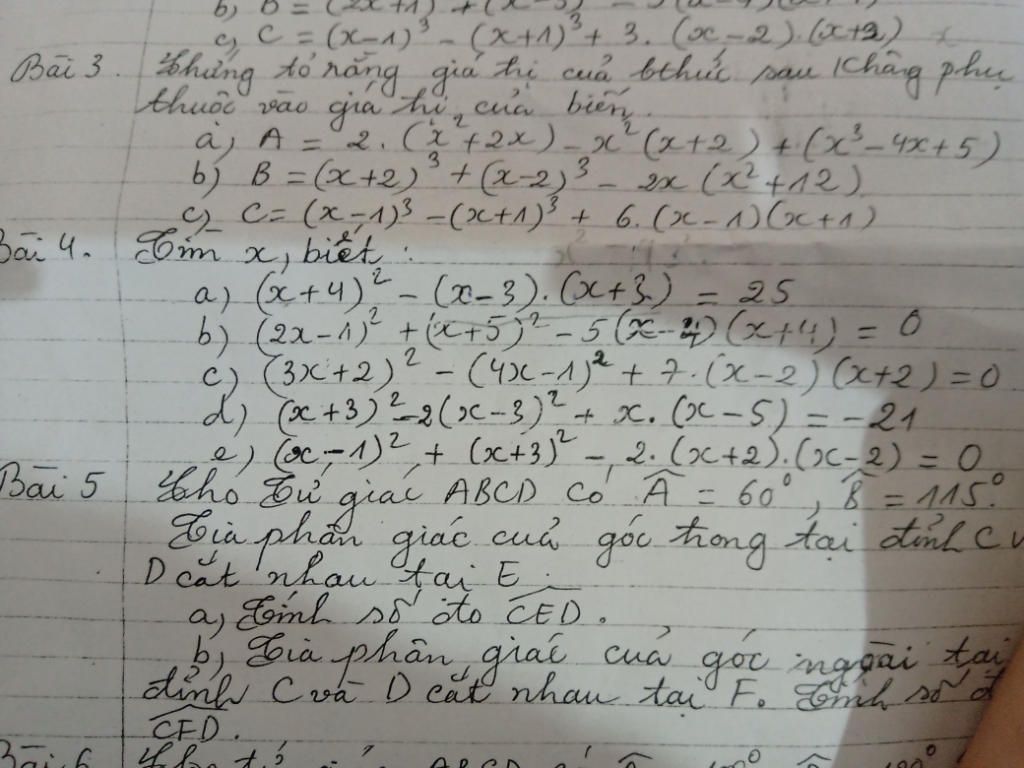 b) B = (2x+1)
c) C = (x-1)³ - (x+1)³ + 3. (x-2).(x+2)
Bài 3. Chứng tỏ rằng giá trị của bthức sau không phụ
thuộc vào giá trị của biến.
a) A = 2. (x² + 2x) - x² (x+2) + (x³ - 4x + 5)
b) B = (x+2)³ + (x-2)³ - 2x (x² + 12)
c) C = (x-1)³ - (x+1)³ + 6. (x-1)(x+1)
Bài 4. Tìm x, biết:
a) (x+4)² - (x-3).(x+3) = 25
b) (2x-1)² + (x+5)² - 5(x-4)(x+4) = 0
c) (3x+2)² - (4x-1)² + 7.(x-2)(x+2) = 0
d) (x+3)² - 2(x-3)² + x.(x-5) = -21
e) (x-1)² + (x+3)² - 2.(x+2).(x-2) = 0
Bài 5 Cho Tứ giác ABCD có Â = 60°, B̂ = 115°.
Tia phân giác của góc trong tại đỉnh C v
D cắt nhau tại E.
a) Tính số đo CED.
b) Tia phân giác của góc ngoài tại
đỉnh C và D cắt nhau tại F. Tính số đ
CFD.
Bài 6 ABCD